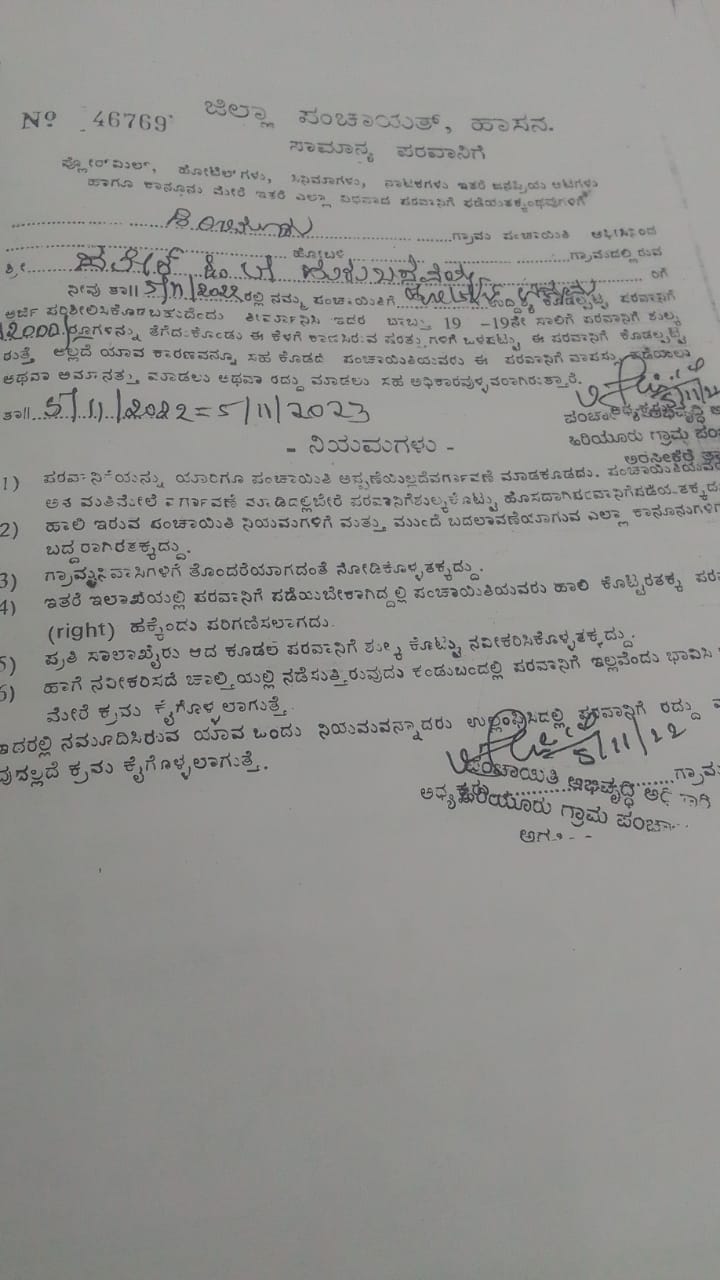 Nº 46769 ಜಿಲ್ಲಾ ಪಂಚಾಯತ್, ಹಾಸನ.
ಸಾಮಾನ್ಯ ಪರವಾನಿಗೆ
ಪ್ಲೋರ್‌ಮಿಲ್, ಹೋಟೆಲ್‌ಗಳು, ಸಿನಿಮಾಗಳು, ನಾಟಕಗಳು ಇತರೆ ಜನಪ್ರಿಯ ಆಟಗಳು
ಹಾಗೂ ಕಾನೂನು ಮೇರೆ ಇತರೆ ಎಲ್ಲಾ ವಿಧವಾದ ಪರವಾನಿಗೆ ಪಡೆಯತಕ್ಕಂಥವುಗಳಿಗೆ
ಹಿರಿಯೂರು ಗ್ರಾಮ ಪಂಚಾಯಿತಿ ಆಫೀಸಿನಿಂದ
ಹೋಬಳಿ ಗ್ರಾಮದಲ್ಲಿರುವ
ಶ್ರೀ ರಿಗೆ
ನೀವು ತಾ|| 5/11/2022 ರಲ್ಲಿ ನಮ್ಮ ಪಂಚಾಯಿತಿಗೆ ಉದ್ದಿಶ್ಯ ಕೊಡಲ್ಪಟ್ಟ ಪರವಾನಿಗೆ
ಅರ್ಜಿ ಪರಿಶೀಲಿಸಿಕೊಡಬಹುದೆಂದು ತೀರ್ಮಾನಿಸಿ ಇದರ ಬಾಬ್ತು 19 -19ನೇ ಸಾಲಿಗೆ ಪರವಾನಿಗೆ ಶುಲ್ಕ
ರೂಗಳನ್ನು ತೆಗೆದುಕೊಂಡು ಈ ಕೆಳಗೆ ಕಾಣಿಸಿರುವ ಷರತ್ತುಗಳಿಗೆ ಒಳಪಟ್ಟು ಈ ಪರವಾನಿಗೆ ಕೊಡಲ್ಪಟ್ಟಿ
ರುತ್ತೆ ಅಲ್ಲದೆ ಯಾವ ಕಾರಣವನ್ನೂ ಸಹ ಕೊಡದೆ ಪಂಚಾಯಿತಿಯವರು ಈ ಪರವಾನಿಗೆ ವಾಪಸ್ಸು ಪಡೆಯಲು
ಅಥವಾ ಅಮಾನತ್ತು ಮಾಡಲು ಅಥವಾ ರದ್ದು ಮಾಡಲು ಸಹ ಅಧಿಕಾರವುಳ್ಳವರಾಗಿರುತ್ತಾರೆ.
ತಾ|| 5/11/2022 = 5/11/2023
5/11/22
ಹಿರಿಯೂರು ಗ್ರಾಮ
ಅರಸೀಕೆರೆ
- ನಿಯಮಗಳು -
1) ಪರವಾನಿಗೆಯನ್ನು ಯಾರಿಗೂ ಪಂಚಾಯಿತಿ ಅಪ್ಪಣೆಯಿಲ್ಲದೆ ವರ್ಗಾವಣೆ ಮಾಡಕೂಡದು. ಪಂಚಾಯಿತಿಯವರ
ಅನುಮತಿಮೇಲೆ ವರ್ಗಾವಣೆ ಮಾಡಿದಲ್ಲಿ ಬೇರೆ ಪರವಾನಿಗೆ ಶುಲ್ಕ ಕೊಟ್ಟು ಹೊಸದಾಗಿ ಪರವಾನಿಗೆ ಪಡೆಯತಕ್ಕದ್ದು
2) ಹಾಲಿ ಇರುವ ಪಂಚಾಯಿತಿ ನಿಯಮಗಳಿಗೆ ಮತ್ತು ಮುಂದೆ ಬದಲಾವಣೆಯಾಗುವ ಎಲ್ಲಾ ಕಾನೂನುಗಳಿಗೂ
ಬದ್ಧರಾಗಿರತಕ್ಕದ್ದು.
3) ಗ್ರಾಮನಿವಾಸಿಗಳಿಗೆ ತೊಂದರೆಯಾಗದಂತೆ ನೋಡಿಕೊಳ್ಳತಕ್ಕದ್ದು.
4) ಇತರೆ ಇಲಾಖೆಯಲ್ಲಿ ಪರವಾನಿಗೆ ಪಡೆಯಬೇಕಾಗಿದ್ದಲ್ಲಿ ಪಂಚಾಯಿತಿಯವರು ಹಾಲಿ ಕೊಟ್ಟಿರತಕ್ಕ
(right) ಹಕ್ಕೆಂದು ಪರಿಗಣಿಸಲಾಗದು.
5) ಪ್ರತಿ ಸಾಲಾಖೈರು ಆದ ಕೂಡಲೆ ಪರವಾನಿಗೆ ಶುಲ್ಕ ಕೊಟ್ಟು ನವೀಕರಿಸಿಕೊಳ್ಳತಕ್ಕದ್ದು.
6) ಹಾಗೆ ನವೀಕರಿಸದೆ ಚಾಲ್ತಿಯಲ್ಲಿ ನಡೆಸುತ್ತಿರುವುದು ಕಂಡುಬಂದಲ್ಲಿ ಪರವಾನಿಗೆ ಇಲ್ಲವೆಂದು ಭಾವಿಸಿ
ಮೇರೆ ಕ್ರಮ ಕೈಗೊಳ್ಳಲಾಗುತ್ತೆ.
ಇದರಲ್ಲಿ ನಮೂದಿಸಿರುವ ಯಾವ ಒಂದು ನಿಯಮವನ್ನಾದರು ಉಲ್ಲಂಘಿಸಿದಲ್ಲಿ ಪರವಾನಿಗೆ ರದ್ದು
ವುದಲ್ಲದೆ ಕ್ರಮ ಕೈಗೊಳ್ಳಲಾಗುತ್ತೆ.
5/11/22
ಪಂಚಾಯಿತಿ ಅಭಿವೃದ್ಧಿ
ಹಿರಿಯೂರು ಗ್ರಾಮ